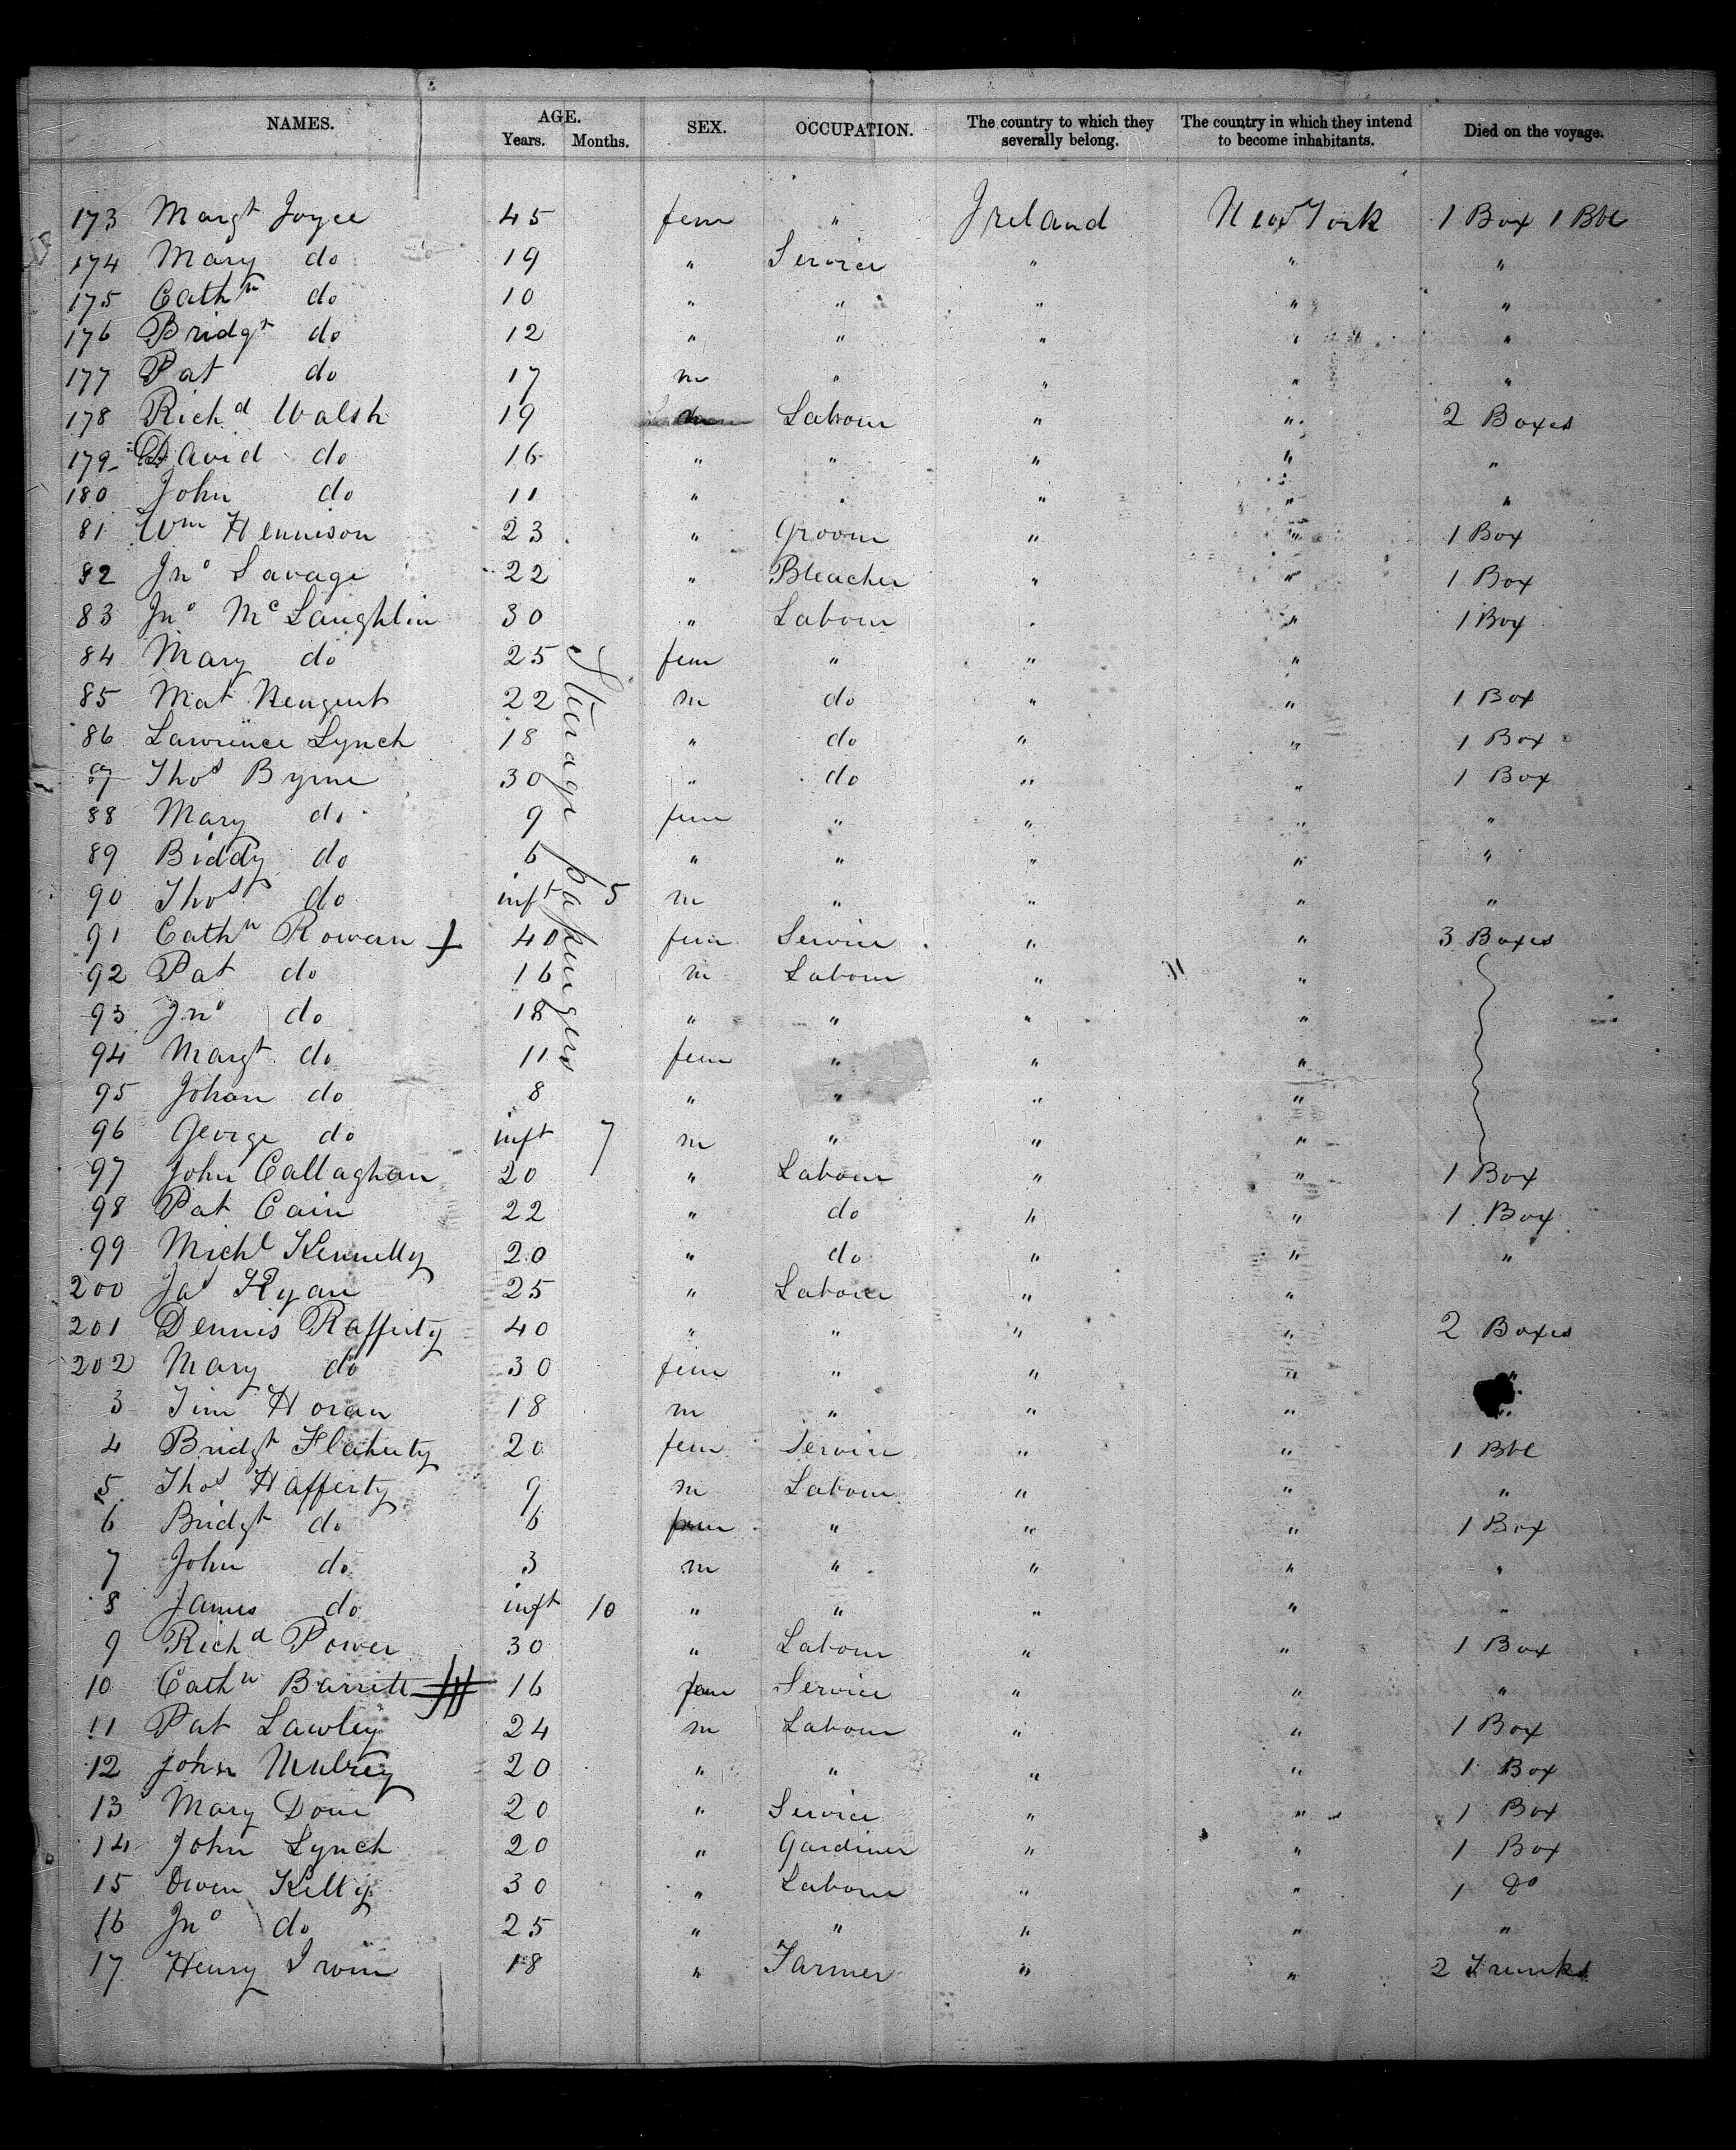 NAMES. AGE. Years. Months. SEX. OCCUPATION. The country to which they severally belong. The country in which they intend to become inhabitants. Died on the voyage.
173 Margt Joyce 45 fem " Ireland New York 1 Box 1 Bbl
174 Mary do 19 " Service " " "
175 Cathn do 10 " " " " "
176 Bridgt do 12 " " " " "
177 Pat do 17 m " " " "
178 Richd Walsh 19 Labour " " 2 Boxes
179 David do 16 " " " " "
180 John do 11 " " " " "
81 Wm Hennison 23 " Groom " " 1 Box
82 Jno Savage 22 " Bleacher " " 1 Box
83 Jno McLaughlin 30 " Labour " " 1 Box
84 Mary do 25 fem " " "
85 Mat Neugent 22 m do " " 1 Box
86 Lawrence Lynch 18 " do " " 1 Box
87 Thos Byrne 30 " do " " 1 Box
88 Mary do 9 fem " " " "
89 Biddy do 6 " " " " "
90 Thos do inft 5 m " " " "
91 Cathn Rowan 40 fem Service " " 3 Boxes
92 Pat do 16 m Labour " "
93 Jno do 18 " " " "
94 Margt do 11 fem " " "
95 Johan do 8 " " " "
96 George do inft 7 m " " "
97 John Callaghan 20 " Labour " " 1 Box
98 Pat Cain 22 " do " " 1 Box
99 Michl Kennelly 20 " do " " "
200 Jas Ryan 25 " Labour " "
201 Dennis Rafferty 40 " " " " 2 Boxes
202 Mary do 30 fem " " " "
3 Tim Horan 18 m " " "
4 Bridgt Flaherty 20 fem Service " " 1 Bbl
5 Thos Hafferty 9 m Labour " " "
6 Bridgt do 6 fem " " " 1 Box
7 John do 3 m " " " "
8 James do inft 10 " " " " "
9 Richd Power 30 " Labour " " 1 Box
10 Cathn Barrett 16 fem Service " " "
11 Pat Lawley 24 m Labour " " 1 Box
12 John Mulrey 20 " " " " 1 Box
13 Mary Dow 20 " Service " " 1 Box
14 John Lynch 20 " Gardiner " " 1 Box
15 Owen Kelly 30 " Labour " " 1 Do
16 Jno do 25 " " " " "
17 Henry Irwin 18 " Farmer " " 2 Trunks
Steerage passengers